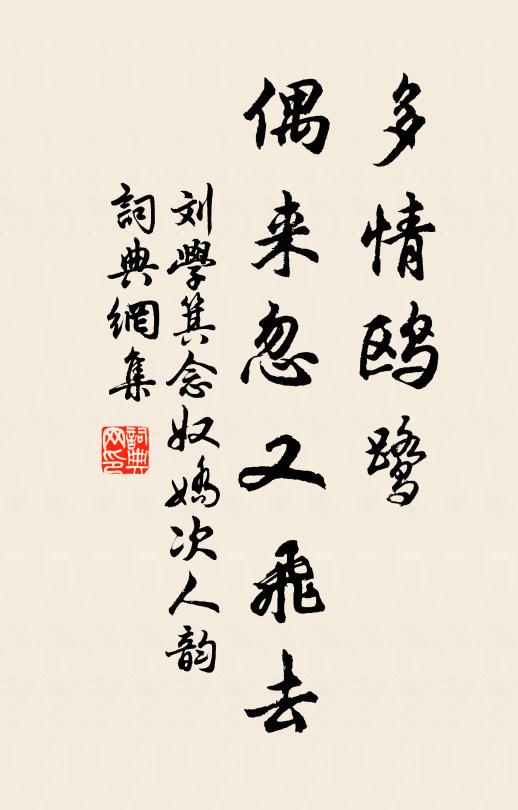 多情鸥鹭
偶来忽又飛去
刘學箕念奴嬌次人韵
詞典網集
詞典网印